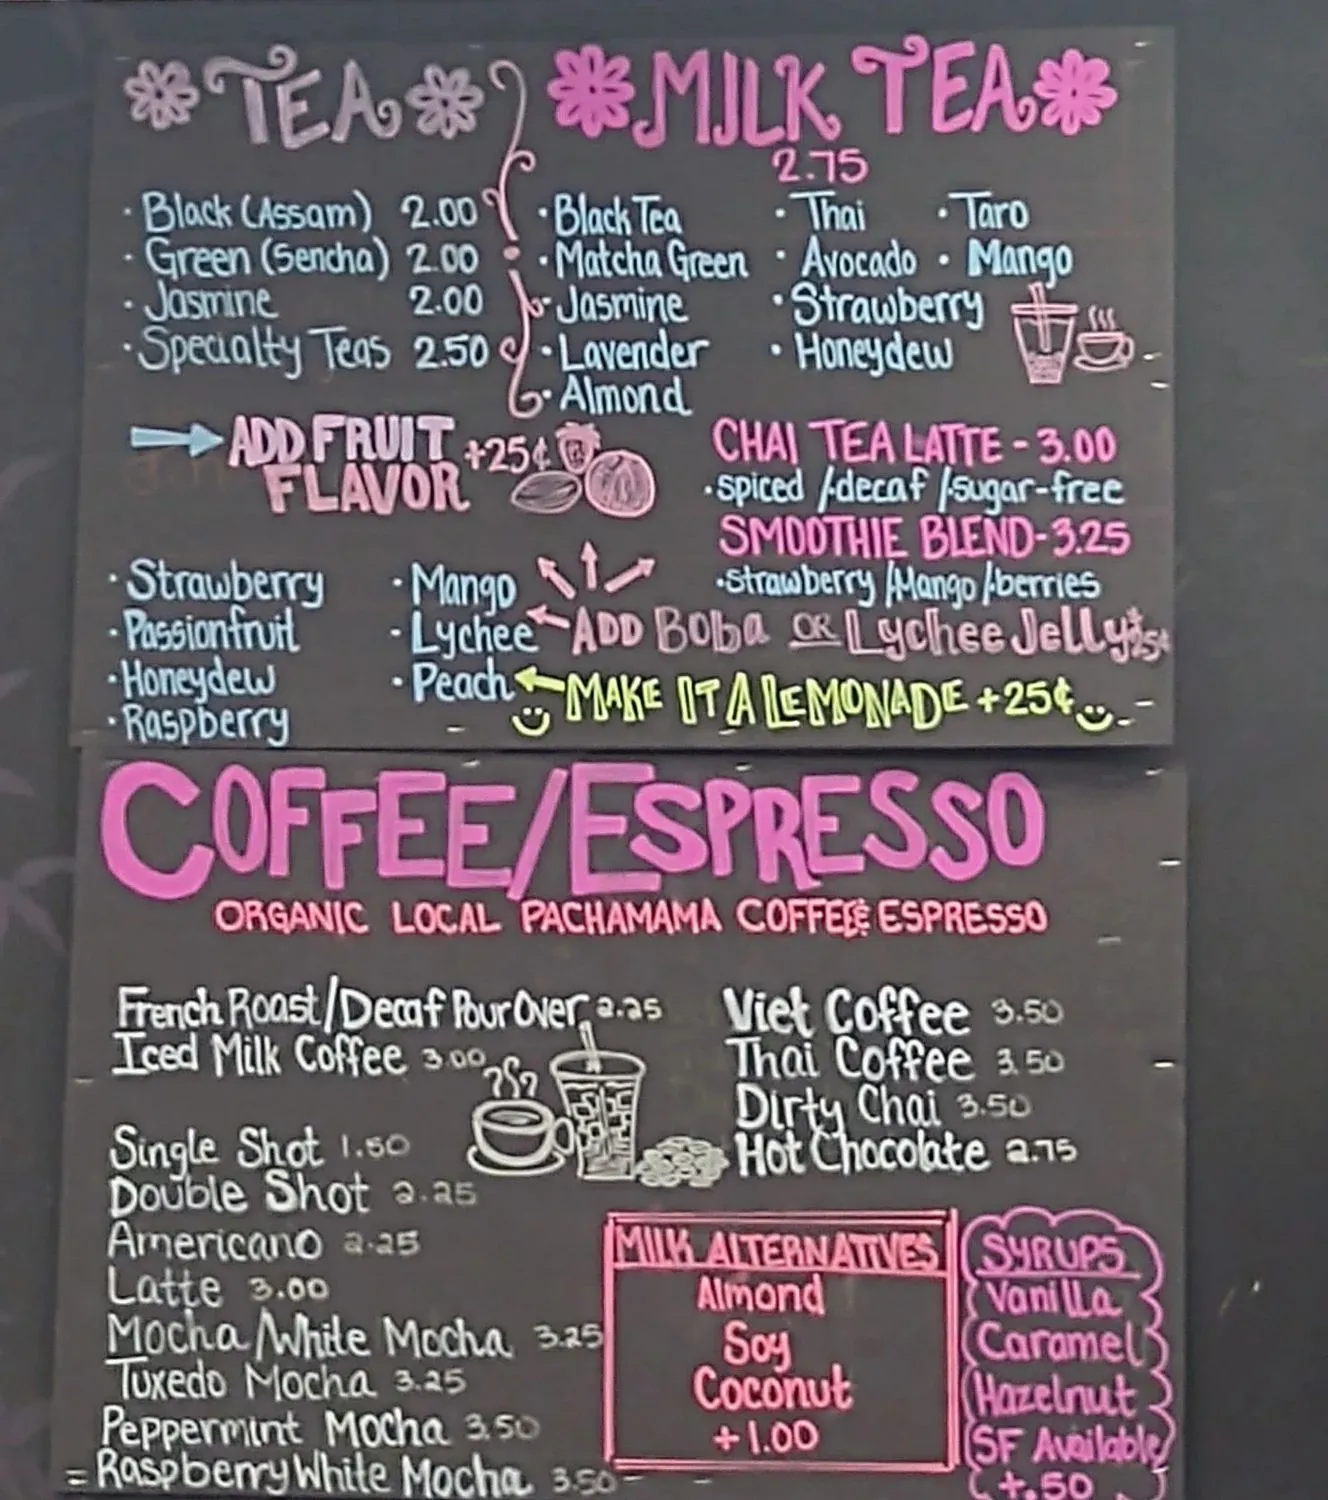 TEA
Black (Assam) 2.00
Green (Sencha) 2.00
Jasmine 2.00
Specialty Teas 2.50
MILK TEA
2.75
Black Tea
Matcha Green
Jasmine
Lavender
Almond
Thai
Avocado
Strawberry
Honeydew
Taro
Mango
ADD FRUIT +25¢
FLAVOR
Strawberry
Passionfruit
Honeydew
Raspberry
Mango
Lychee
Peach
CHAI TEA LATTE - 3.00
·spiced /·decaf /·sugar-free
SMOOTHIE BLEND-3.25
·strawberry /·Mango /·berries
ADD Boba OR Lychee Jelly +25¢
MAKE IT A LEMONADE +25¢
COFFEE/ESPRESSO
ORGANIC LOCAL PACHAMAMA COFFEE & ESPRESSO
French Roast/Decaf Pour Over 2.25
Iced Milk Coffee 3.00
Single Shot 1.50
Double Shot 2.25
Americano 2.25
Latte 3.00
Mocha/White Mocha 3.25
Tuxedo Mocha 3.25
Peppermint Mocha 3.50
Raspberry White Mocha 3.50
Viet Coffee 3.50
Thai Coffee 3.50
Dirty Chai 3.50
Hot Chocolate 2.75
MILK ALTERNATIVES
Almond
Soy
Coconut
+1.00
SYRUPS
Vanilla
Caramel
Hazelnut
SF Available
+.50